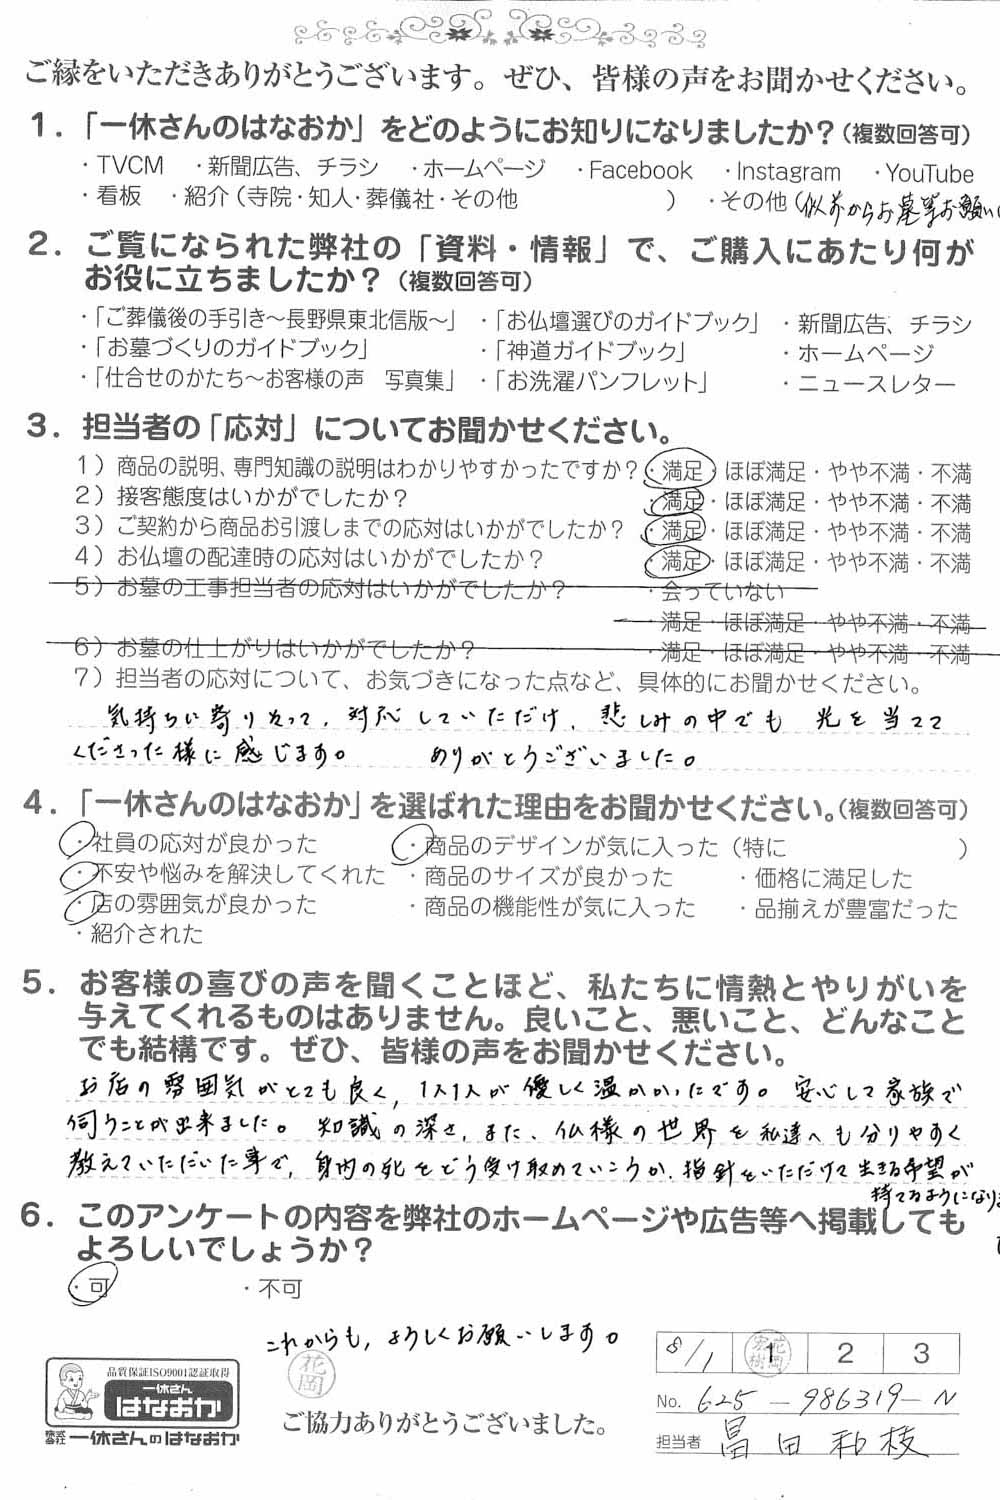 ご縁をいただきありがとうございます。ぜひ、皆様の声をお聞かせください。
1．「一休さんのはなおか」をどのようにお知りになりましたか？（複数回答可）
・TVCM ・新聞広告、チラシ ・ホームページ ・Facebook ・Instagram ・YouTube
・看板 ・紹介（寺院・知人・葬儀社・その他 ） ・その他（以前からお墓等お願い
2．ご覧になられた弊社の「資料・情報」で、ご購入にあたり何が
お役に立ちましたか？（複数回答可）
・「ご葬儀後の手引き〜長野県東北信版〜」 ・「お仏壇選びのガイドブック」 ・新聞広告、チラシ
・「お墓づくりのガイドブック」 ・「神道ガイドブック」 ・ホームページ
・「仕合せのかたち〜お客様の声　写真集」 ・「お洗濯パンフレット」 ・ニュースレター
3．担当者の「応対」についてお聞かせください。
1）商品の説明、専門知識の説明はわかりやすかったですか？ ・満足・ほぼ満足・やや不満・不満
2）接客態度はいかがでしたか？ ・満足・ほぼ満足・やや不満・不満
3）ご契約から商品お引渡しまでの応対はいかがでしたか？ ・満足・ほぼ満足・やや不満・不満
4）お仏壇の配達時の応対はいかがでしたか？ ・満足・ほぼ満足・やや不満・不満
5）お墓の工事担当者の応対はいかがでしたか？ ・会っていない
・満足・ほぼ満足・やや不満・不満
6）お墓の仕上がりはいかがでしたか？ ・満足・ほぼ満足・やや不満・不満
7）担当者の応対について、お気づきになった点など、具体的にお聞かせください。
気持ちに寄りそって、対応していただけ、悲しみの中でも 光を当てて
くださった様に感じます。 ありがとうございました。
4．「一休さんのはなおか」を選ばれた理由をお聞かせください。（複数回答可）
・社員の応対が良かった ・商品のデザインが気に入った（特に ）
・不安や悩みを解決してくれた ・商品のサイズが良かった ・価格に満足した
・店の雰囲気が良かった ・商品の機能性が気に入った ・品揃えが豊富だった
・紹介された
5．お客様の喜びの声を聞くことほど、私たちに情熱とやりがいを
与えてくれるものはありません。良いこと、悪いこと、どんなこと
でも結構です。ぜひ、皆様の声をお聞かせください。
お店の雰囲気がとても良く、1人1人が優しく温かかったです。安心して家族で
伺うことが出来ました。知識の深さ、また、仏様の世界を私達へも分りやすく
教えていただいた事で、身内の死をどう受け取めていこうか、指針をいただけて生きる希望が
持てるようになりま
6．このアンケートの内容を弊社のホームページや広告等へ掲載しても
よろしいでしょうか？
・可 ・不可
これからも、よろしくお願いします。
花岡
8/1 1 2 3
品質保証ISO9001認証取得
一休さん
はなおか
株式会社 一休さんのはなおか
ご協力ありがとうございました。
No. 625－986319－N
担当者 冨田和枝